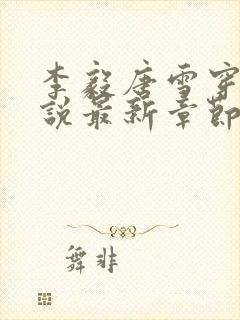 李毅唐雪穿
说最新章节
舞非